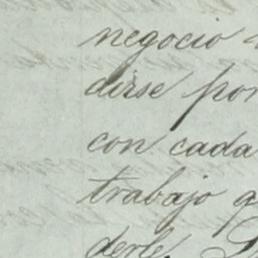 negocio
dirse por
con cada
trabajo q
derle.